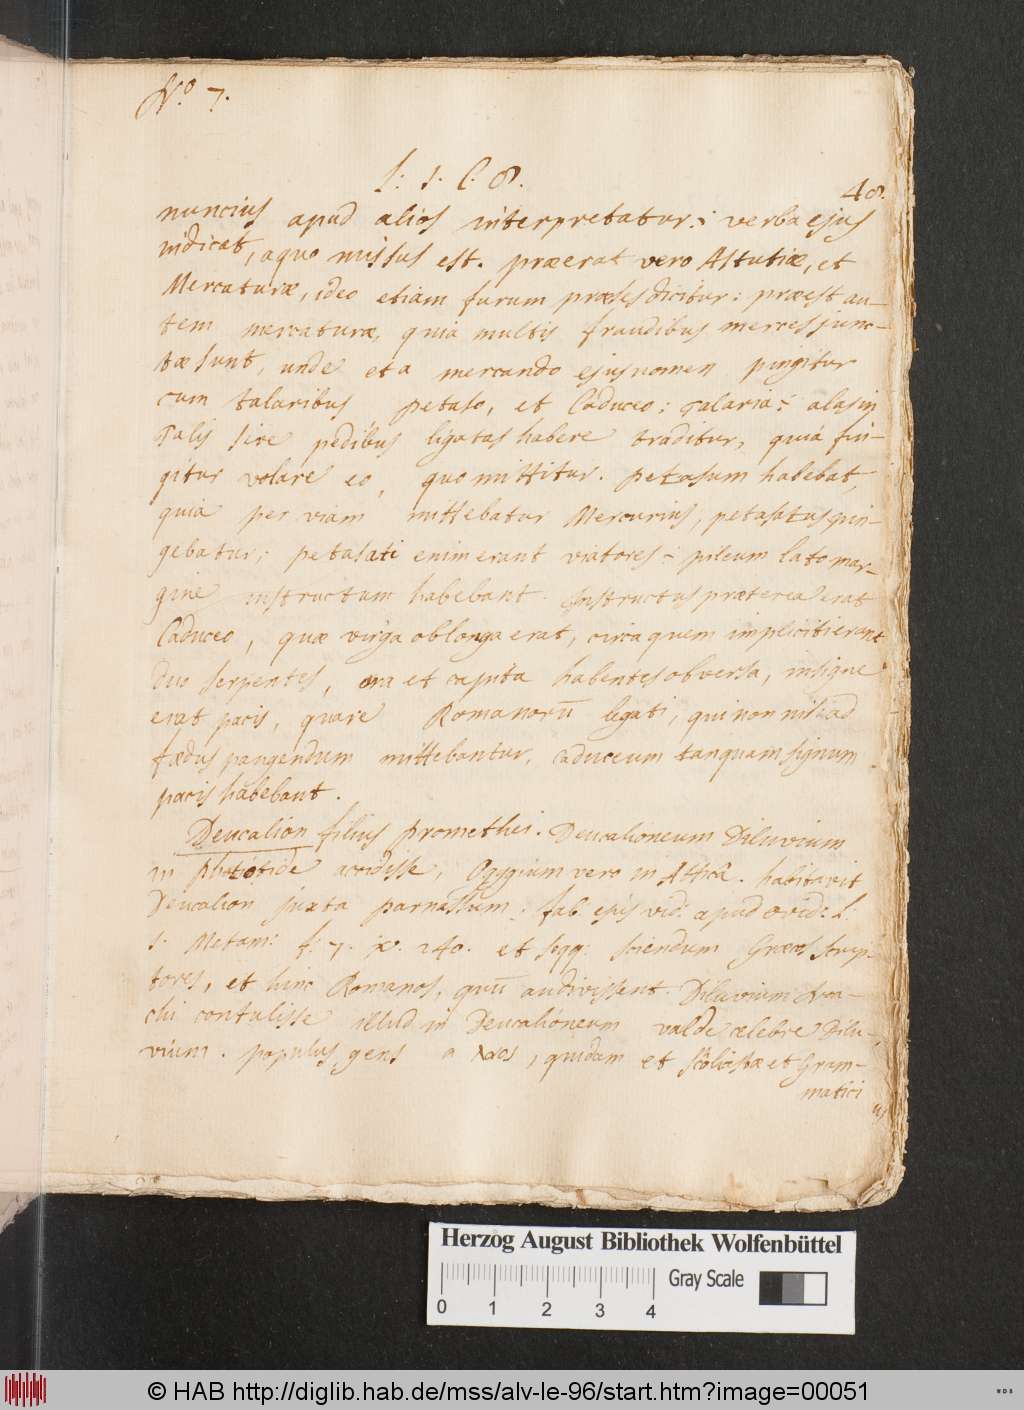 No 7.
l: 1. C. 8.
48.
nuncius apud alios interpretatur: verba ejus
indicat, a quo missus est. præerat vero Astutiæ, et
Mercaturæ, ideo etiam furum præses dicitur: præest au-
tem mercaturæ, quia multis fraudibus merces junc-
tæ sunt, unde et a mercando ejus nomen pingitur
cum talaribus petaso, et Caduceo: Talaria: alas in
Talis sive pedibus ligatas habere traditur, quia fin-
gitur volare eo, quo mittitur. petasum habebat,
quia per viam mittebatur Mercurius, petasatus pin-
gebatur; petasati enim erant viatores: pileum lato mar-
gine instructum habebant. Instructus præterea erat
Caduceo, quæ virga oblonga erat, circa quem impliciti erant
duo serpentes, ora et caputa habentes obversa, insigne
erat pacis, quare Romanorū legati, qui non nisi ad
fædus pangendum mittebantur, caduceum tanquam signum
pacis habebant.
Deucalion filius promethei. Deucalioneum Diluvium
in accidisse, Ogygium vero in Atticâ. habitavit
Deucalion juxta parnassum. fab. ejus vid: apud Ovid: l:
1. Metam: f: 7. 240. et seqq: sciendum Græcos scrip-
tores, et hinc Romanos, quū audivissent Diluvium Noa-
chi contulisse illud in Deucalioneum valde celebre Dilu-
vium. populus, gens a quidam et Scoliastæ et Gram-
matici
Herzog August Bibliothek Wolfenbüttel
Gray Scale
0 1 2 3 4
© HAB http://diglib.hab.de/mss/alv-le-96/start.htm?image=00051